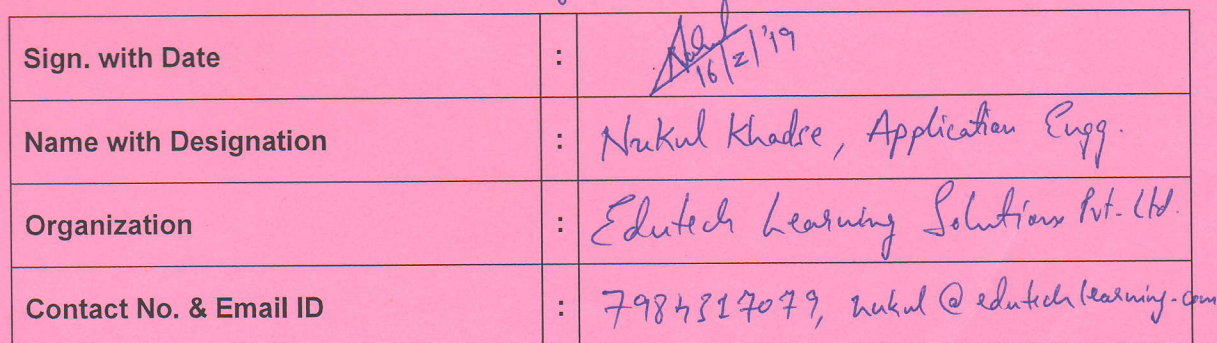 Sign. with Date : 16/2/'19
Name with Designation : Nukul Khadse, Application Engg.
Organization : Edutech Learning Solutions Pvt. Ltd.
Contact No. & Email ID : 7984317079, nukul@edutechlearning.com